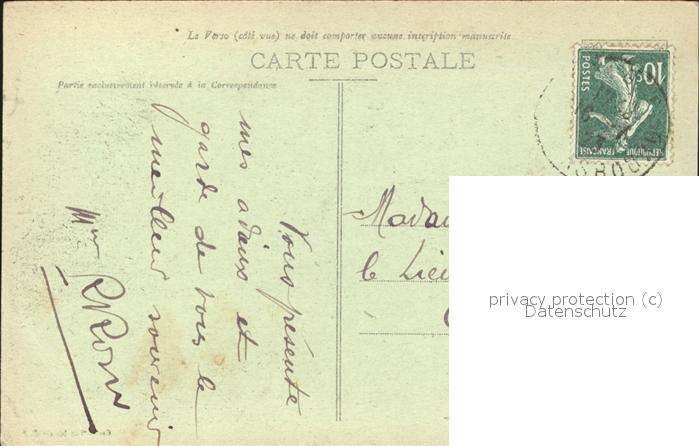 Le Verso (côté vue) ne doit comporter aucune inscription manuscrite
CARTE POSTALE
Partie exclusivement réservée à la Correspondance
Vous présente
mes adieux et
garde de vous le
meilleur souvenir
Mme
10c
POSTES
RÉPUBLIQUE FRANÇAISE
Madam
le Lieu
privacy protection (c)
Datenschutz